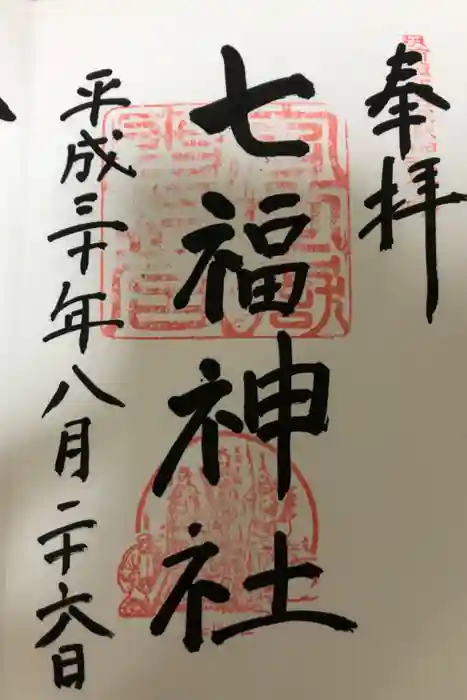 奉拝
七福神社
平成三十年八月二十六日